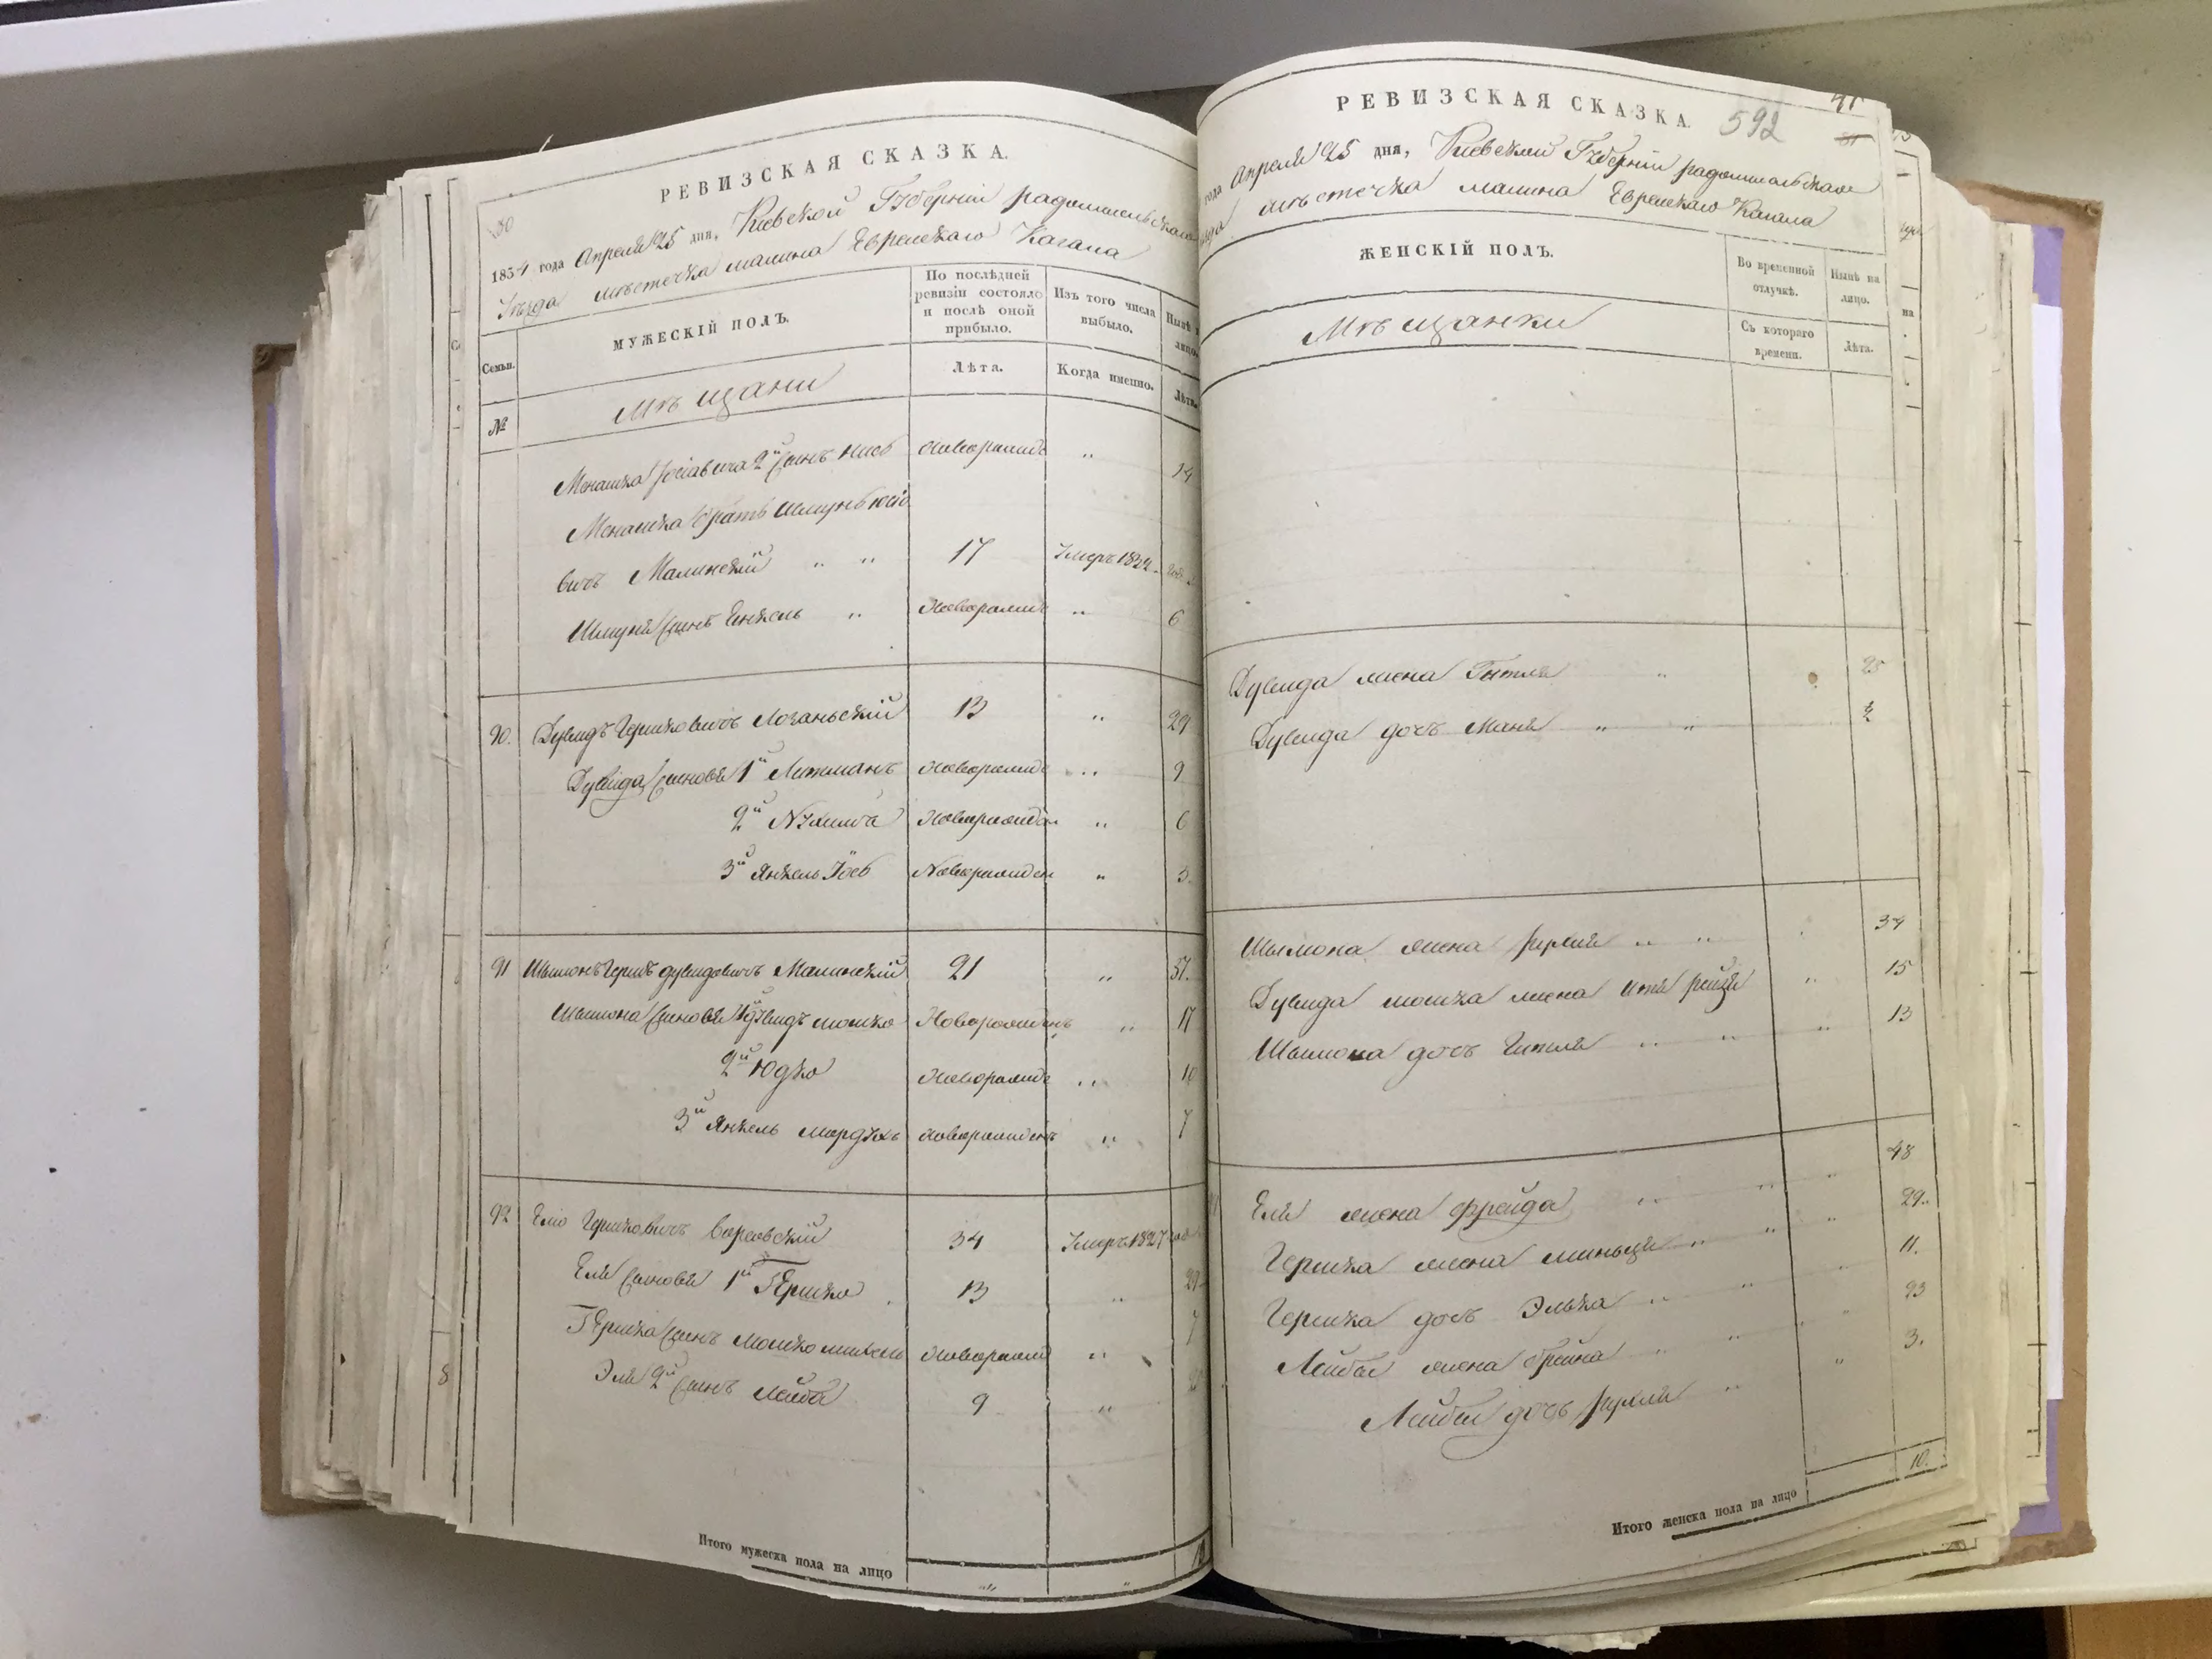 РЕВИЗСКАЯ СКАЗКА.
1834 года Апреля 25 дня, Киевской Губерніи радомысльскаго
Уезда местечка малина Еврейскаго Кагала
Семьи.
МУЖЕСКІЙ ПОЛЪ.
По послѣдней ревизіи состояло и послѣ оной прибыло.
Изъ того числа выбыло.
Нынѣ лицо.
№
Лѣта.
Когда именно.
Лѣта.
Мѣщани
Менашка 2й Сынъ новорожд " 14
Менашка братъ
вичъ Малинскій " " 17 Умеръ 1822
Сынъ Енкель " новорожд " 6
90. Дувидъ Гершковичъ 13 " 29
Дувида Сыновя 1й Литманъ новорожде " 9
2й новорожден " 6
3й Янкель новорожден " 3.
91 Шымонъ Гершъ дувидовичъ Малинскій 21 " 37.
Шымона Сыновя 1й дувидъ мошко Новорожденъ " 17
2й Юдко новорожде " 10
3й Янкель мордухъ новорожденъ " 7
92 Еліо Гершковичъ 34 Умеръ 1827
Еля Сыновя 1й Гершко 13 " 29
Гершка Сынъ Мошко новорожд " 7
Эля 2й Сынъ Лейба 9 "
Итого мужеска пола на лицо
РЕВИЗСКАЯ СКАЗКА.
592
41
года Апреля 25 дня, Киевской Губерніи радомысльскаго
местечка малина Еврейскаго Кагала
ЖЕНСКІЙ ПОЛЪ.
Во временной отлучкѣ.
Нынѣ на лицо.
Съ котораго времени.
Лѣта.
Мѣщанки
Дувида жена Гитля " 25
Дувида дочъ Маня " "
Шымона жена " " 34
Дувида мошка жена " 15
Шымона дочъ Гитля " " " 13
Еля жена фрейда " " " 48
Гершка жена " " " 29.
Гершка дочъ Элька " " " 11.
Лейбы жена брейна " " " 23
Лейбы дочъ " " 3.
Итого женска пола на лицо 10.